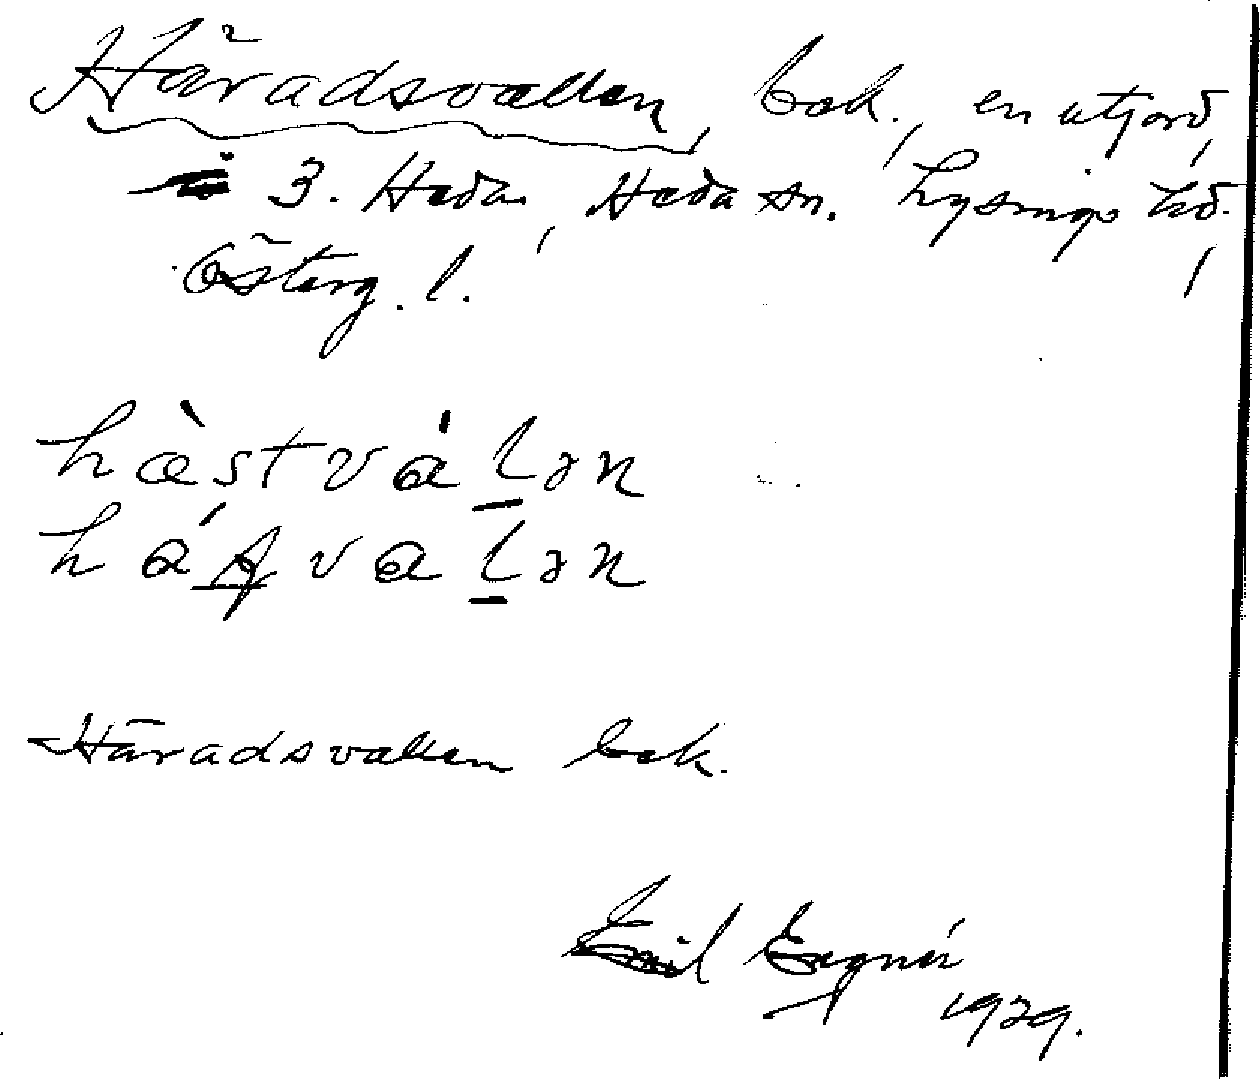 Häradsvallen, bek., en utjord,
i 3. Heda, Heda sn. Lysings hd.,
Österg. l.
hæ̀stvál̲ən
há vál̲ən
Häradsvallen bek.
Emil
1929.